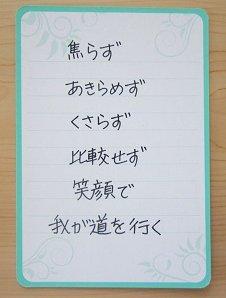 焦らず
あきらめず
くさらず
比較せず
笑顔で
我が道を行く